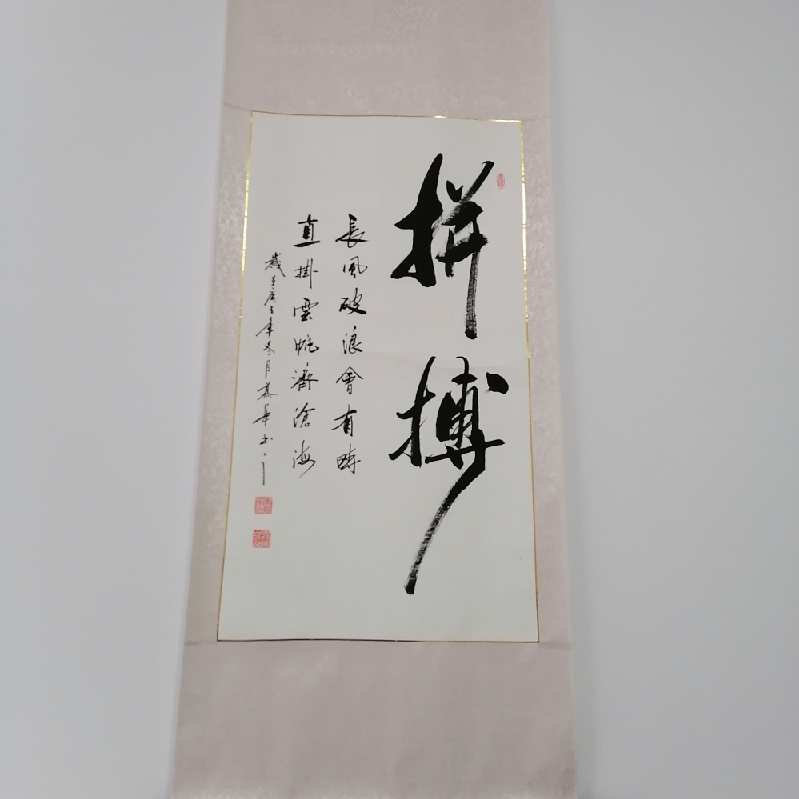 拼搏
長風破浪會有時
直掛雲帆濟滄海
歲在庚子年冬月